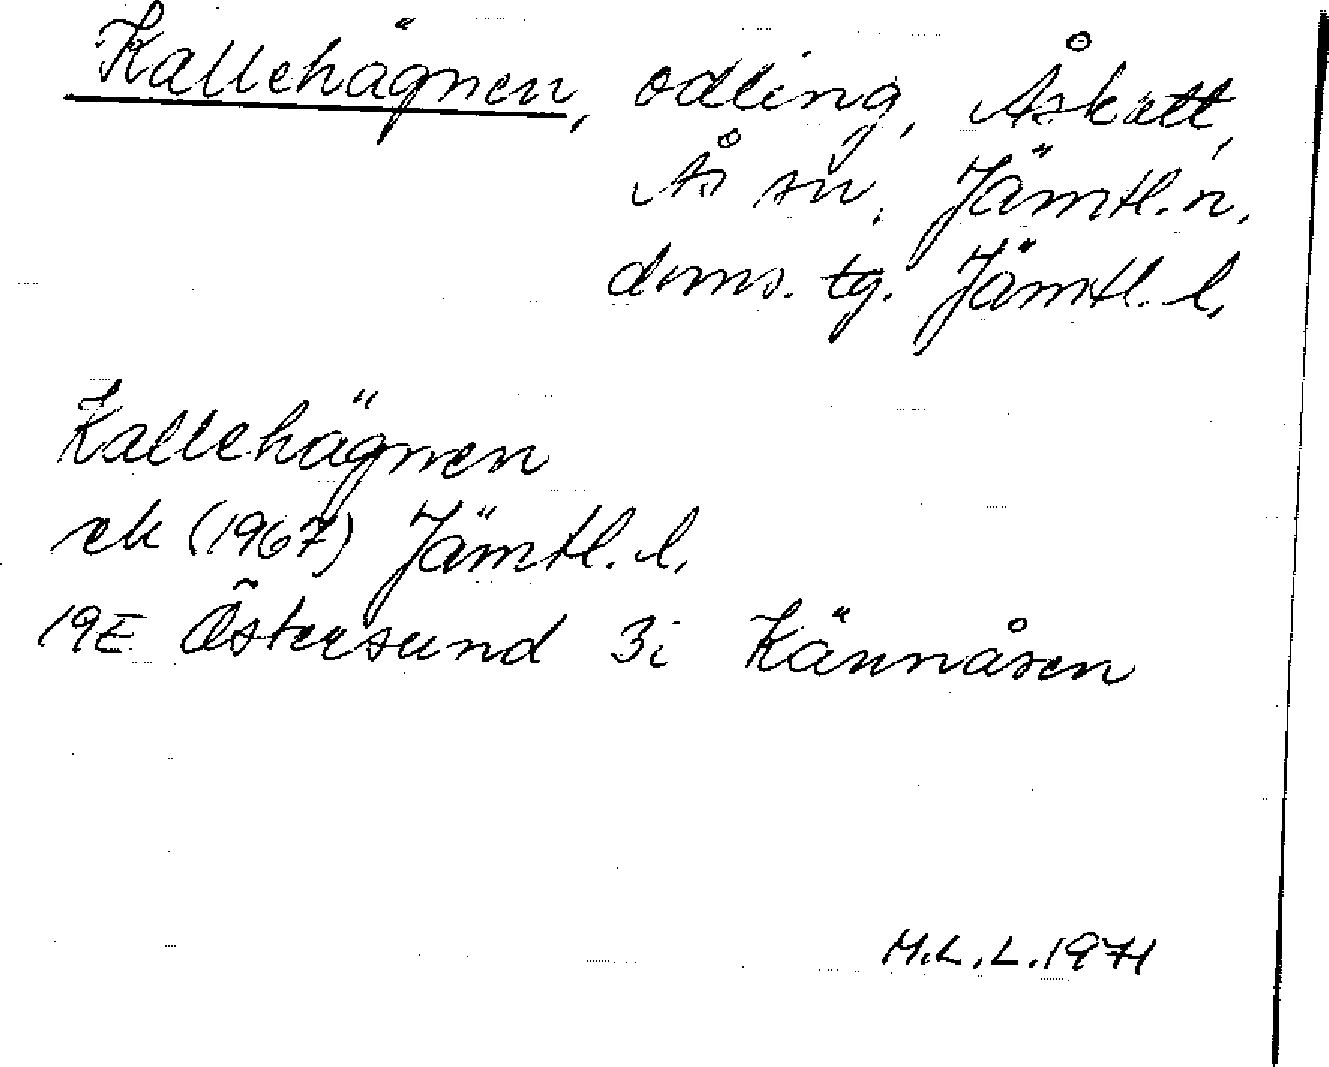 Kallehägnen, odling, Åskott,
Ås sn, Jämtl. n.
doms. tg. Jämtl. l.
Kallehägnen
ek (1967) Jämtl. l.
19E Östersund 3i Kännåsen
M.L.L. 1971